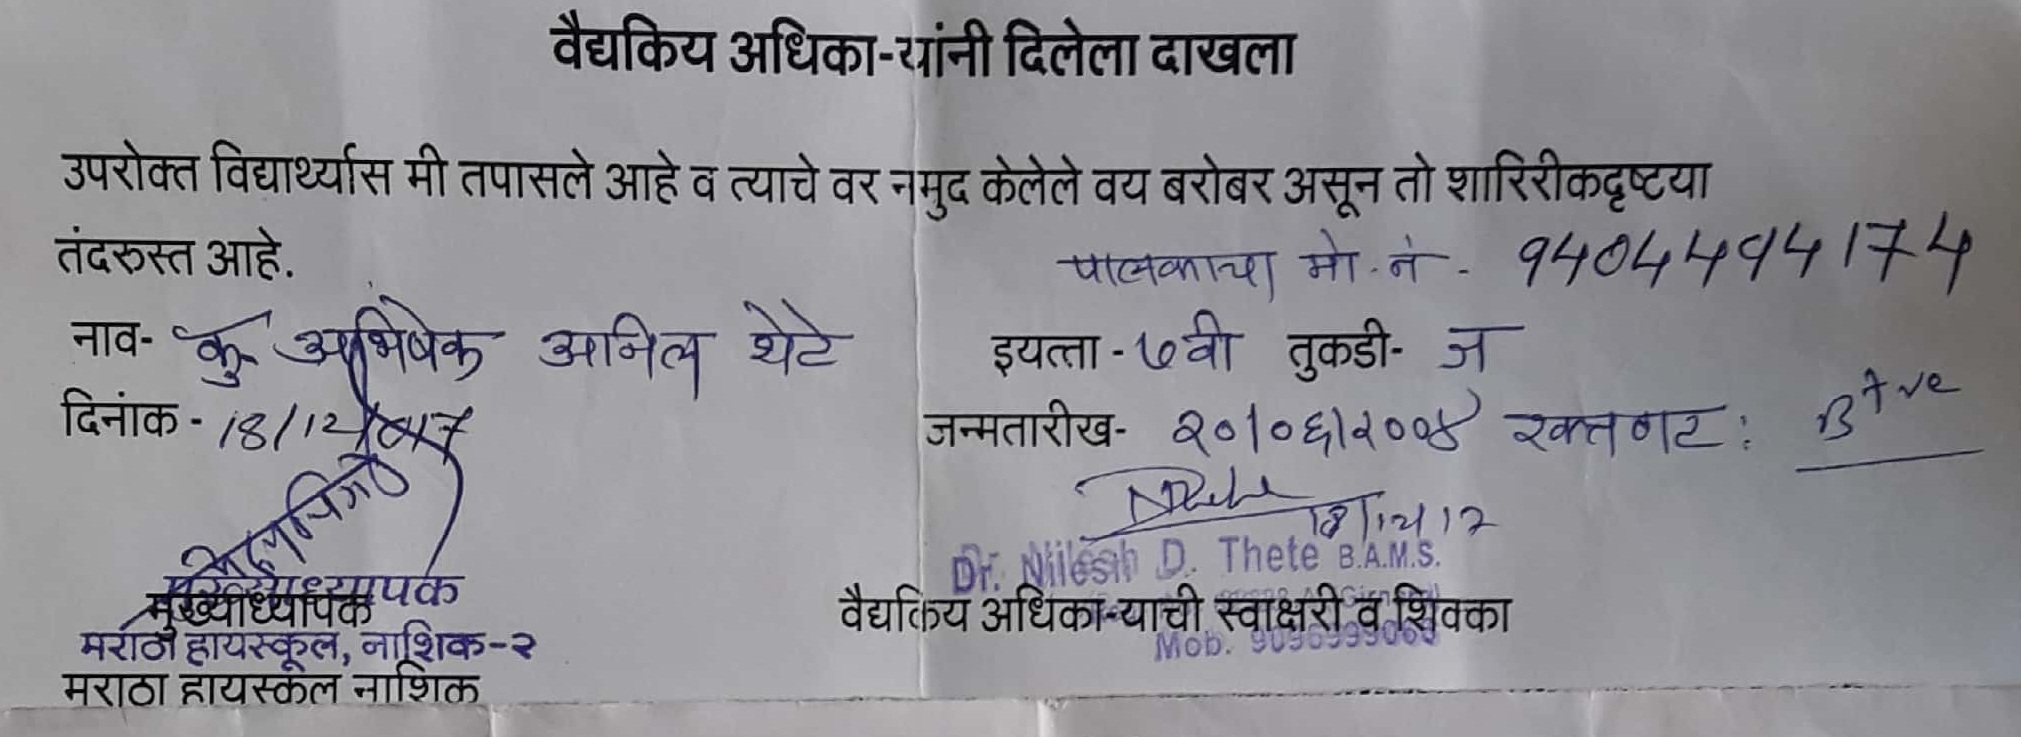 वैद्यकिय अधिका-यांनी दिलेला दाखला
उपरोक्त विद्यार्थ्यास मी तपासले आहे व त्याचे वर नमुद केलेले वय बरोबर असून तो शारिरीकदृष्टया
तंदरुस्त आहे.
पालकाचा मो. नं - 9404494174
नाव- कु अभिषेक अनिल थेटे इयत्ता - ७वी तुकडी- ज
दिनांक - 18/12/2017 जन्मतारीख- २०/०६/२००४ रक्तगट : B+ve
18/12/17
Dr. Nilesh D. Thete B.A.M.S.
मुख्याध्यापक
मुख्याध्यापक वैद्यकिय अधिका-याची स्वाक्षरी व शिक्का
मराठा हायस्कूल, नाशिक-२ Mob.
मराठा हायस्कूल नाशिक